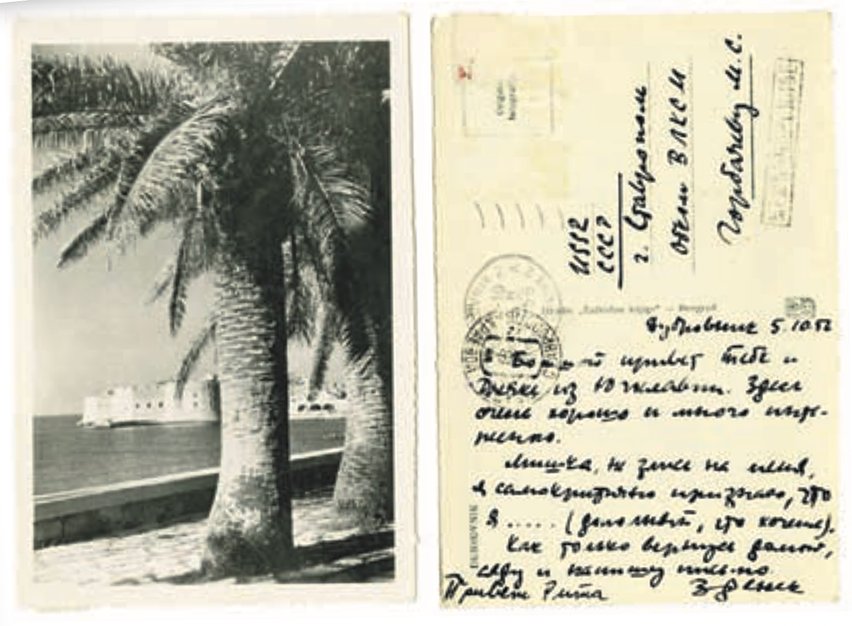 USSR
СССР
г. Ставрополь
обком ВЛКСМ
Горбачеву М.С.
"Zadružna knjiga" — Beograd
DUBROVNIK
Дубровник 5.10.
Большой привет тебе и
из Югславии. Здесь
очень хорошо и много инте-
ресного.
Мишка, не злись на меня,
я самокритично признаю, что
я ..... (дополняй, что хочешь).
Как только вернусь домой,
сяду и напишу письмо.
Привет Рита
Зденек